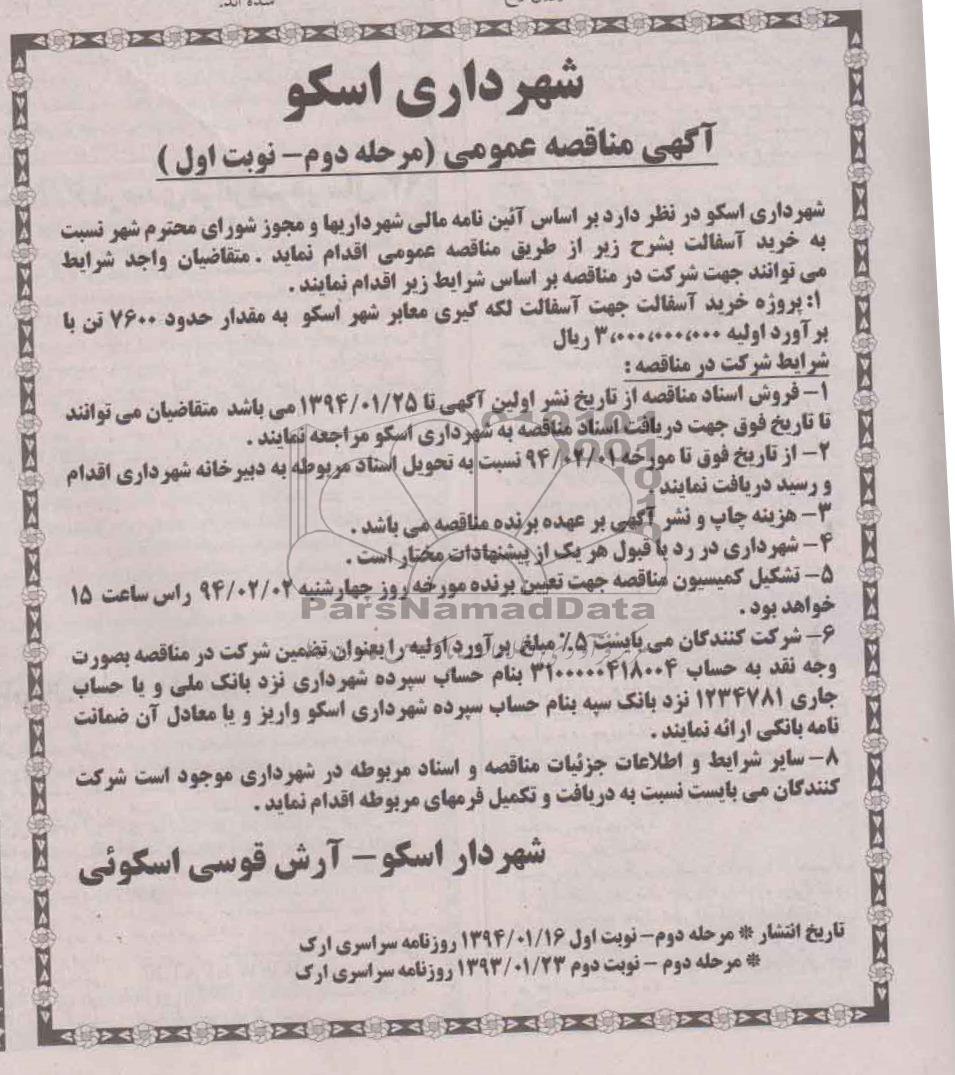 شده اند.
شهرداری اسکو
آگهی مناقصه عمومی (مرحله دوم– نوبت اول )
شهرداری اسکو در نظر دارد بر اساس آئین نامه مالی شهرداریها و مجوز شورای محترم شهر نسبت
به خرید آسفالت بشرح زیر از طریق مناقصه عمومی اقدام نماید . متقاضیان واجد شرایط
می توانند جهت شرکت در مناقصه بر اساس شرایط زیر اقدام نمایند .
۱: پروژه خرید آسفالت جهت آسفالت لکه گیری معابر شهر اسکو به مقدار حدود ۷۶۰۰ تن با
برآورد اولیه ۳،۰۰۰،۰۰۰،۰۰۰ ریال
شرایط شرکت در مناقصه :
۱– فروش اسناد مناقصه از تاریخ نشر اولین آگهی تا ۱۳۹۴/۰۱/۲۵ می باشد متقاضیان می توانند
تا تاریخ فوق جهت دریافت اسناد مناقصه به شهرداری اسکو مراجعه نمایند .
۲– از تاریخ فوق تا مورخه ۹۴/۰۲/۰۱ نسبت به تحویل اسناد مربوطه به دبیرخانه شهرداری اقدام
و رسید دریافت نمایند .
۳– هزینه چاپ و نشر آگهی بر عهده برنده مناقصه می باشد .
۴– شهرداری در رد یا قبول هر یک از پیشنهادات مختار است .
۵– تشکیل کمیسیون مناقصه جهت تعیین برنده مورخه روز چهارشنبه ۹۴/۰۲/۰۲ راس ساعت ۱۵
خواهد بود .
ParsNamadData
۶– شرکت کنندگان می بایست ۵٪ مبلغ برآورد اولیه را بعنوان تضمین شرکت در مناقصه بصورت
وجه نقد به حساب ۳۱۰۰۰۰۰۴۱۸۰۰۴ بنام حساب سپرده شهرداری نزد بانک ملی و یا حساب
جاری ۱۲۳۴۷۸۱ نزد بانک سپه بنام حساب سپرده شهرداری اسکو واریز و یا معادل آن ضمانت
نامه بانکی ارائه نمایند .
۸– سایر شرایط و اطلاعات جزئیات مناقصه و اسناد مربوطه در شهرداری موجود است شرکت
کنندگان می بایست نسبت به دریافت و تکمیل فرمهای مربوطه اقدام نماید .
شهردار اسکو – آرش قوسی اسکوئی
تاریخ انتشار * مرحله دوم– نوبت اول ۱۳۹۴/۰۱/۱۶ روزنامه سراسری ارک
* مرحله دوم – نوبت دوم ۱۳۹۳/۰۱/۲۳ روزنامه سراسری ارک